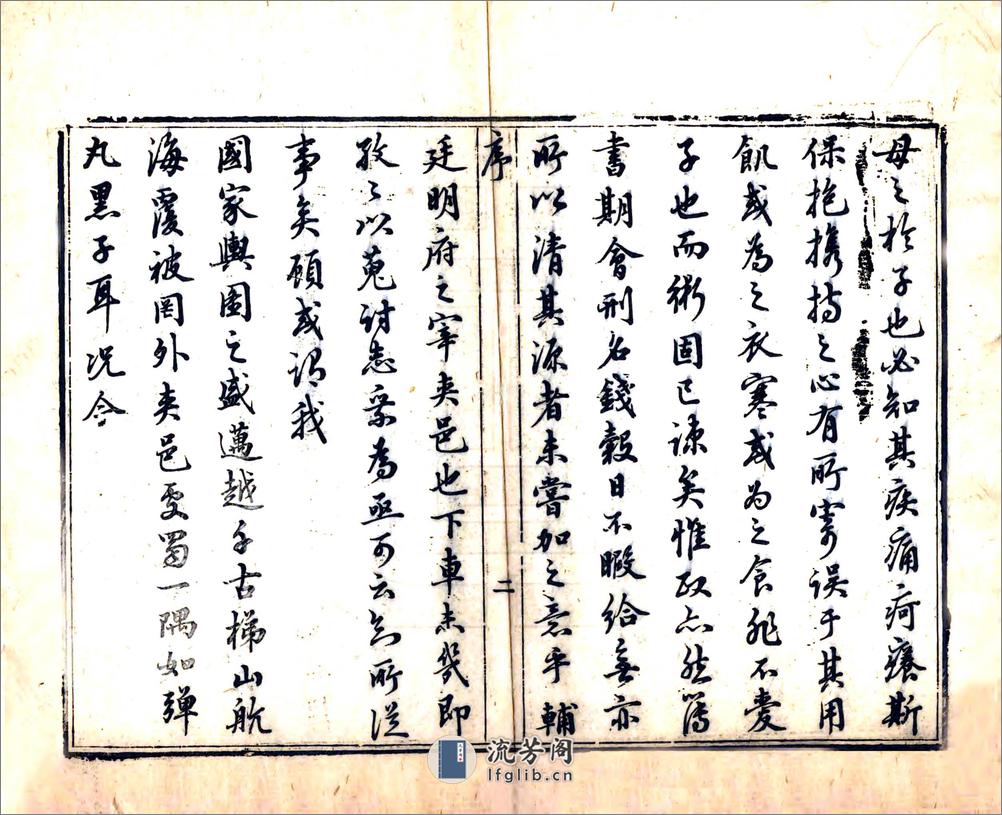 母之於子也必知其疾痛疴癢斯
保抱擕持之心有所寄誤于其用
飢或為之衣寒或為之食非不愛
子也而術固已疎矣惟政亦然簿
書期會刑名錢穀日不暇給無亦
所以清其源者未嘗加之意乎輔
序
二
廷明府之宰夾邑也下車未幾即
孜々以蒐討志乘為亟可云知所從
事矣顧或謂我
國家輿圖之盛邁越千古梯山航
海覆被罔外夾邑受蜀一隅如彈
丸黑子耳况今
流芳阁
lfglib.cn